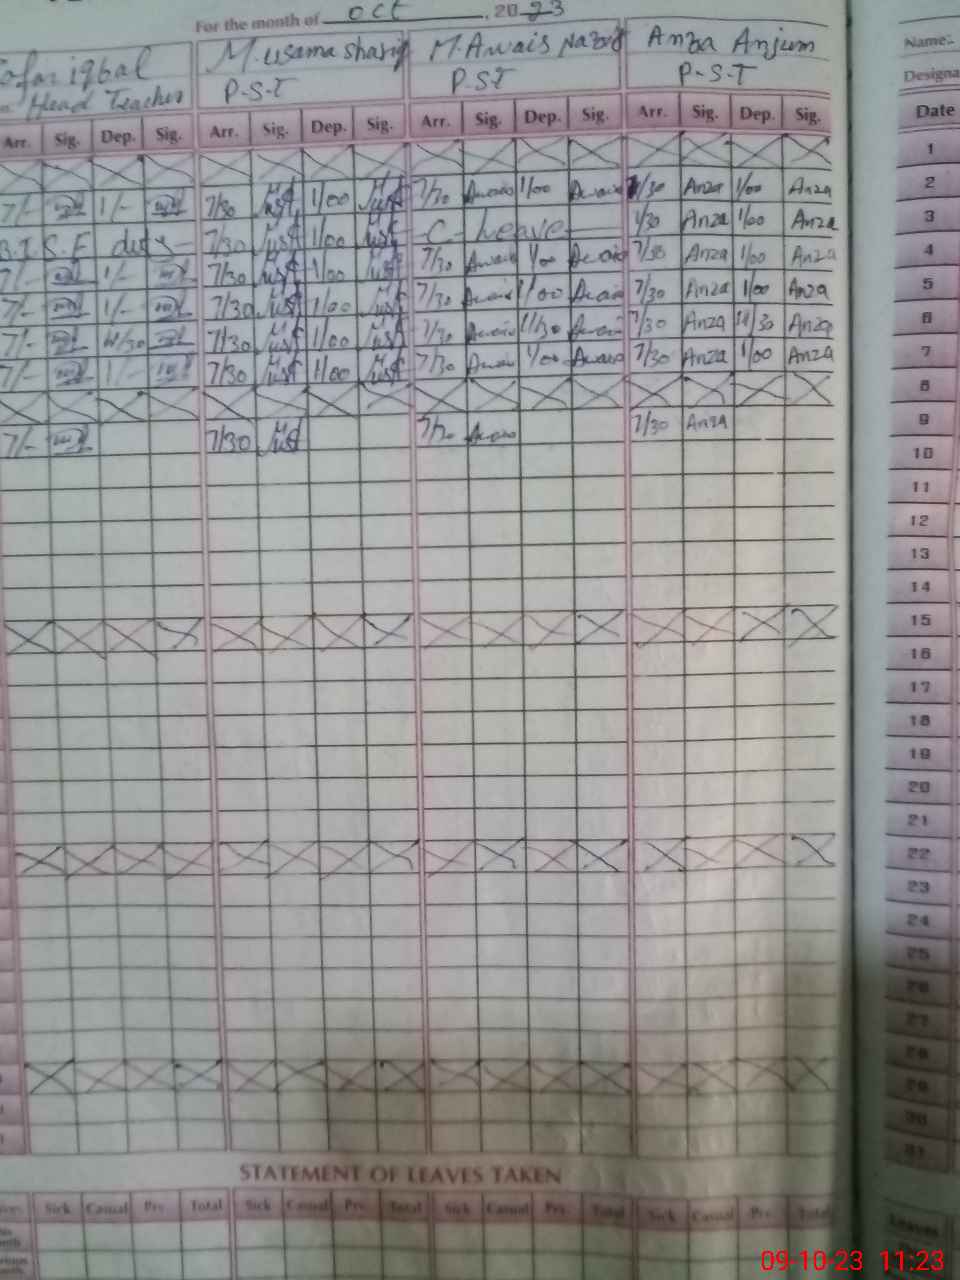 For the month of oct, 2023
iqbal M.usama sharif M.Awais Nazir Anza Anjum Name:-
Head Teacher P-S-T P-S-T P-S-T Designa
Arr. Sig. Dep. Sig. Arr. Sig. Dep. Sig. Arr. Sig. Dep. Sig. Arr. Sig. Dep. Sig. Date
1
7/- 1/- 7/30 1/00 7/30 Awais 1/00 Awais 7/30 Anza 1/00 Anza 2
7/30 1/00 C- Leave 7/30 Anza 1/00 Anza 3
7/- 1/- 7/30 1/00 7/30 Awais 1/00 Awais 7/30 Anza 1/00 Anza 4
7/- 1/- 7/30 1/00 7/30 Awais 1/00 Awais 7/30 Anza 1/00 Anza 5
7/- 11/30 7/30 1/00 7/30 Awais 11/30 Awais 7/30 Anza 11/30 Anza 6
7/- 1/- 7/30 1/00 7/30 Awais 1/00 Awais 7/30 Anza 1/00 Anza 7
8
7/- 7/30 7/30 Awais 7/30 Anza 9
10
11
12
13
14
15
16
17
18
19
20
21
22
23
24
25
26
27
28
29
30
31
STATEMENT OF LEAVES TAKEN
Sick Casual Prv. Total Sick Casual Prv. Total Sick Casual Prv. Total Sick Casual Prv. Total Leaves
09-10-23 11:23